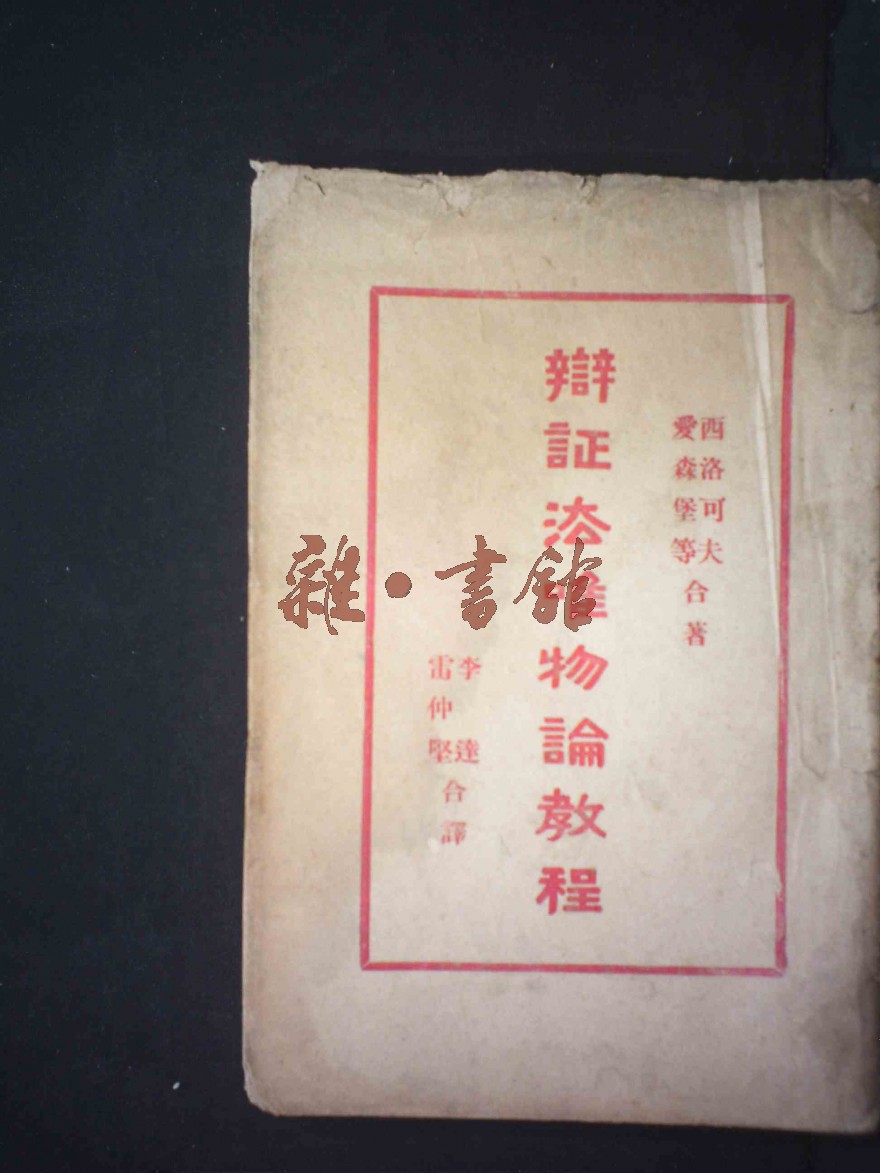 西洛可夫
愛森堡等
合著
辯証法唯物論教程
李達
雷仲堅
合譯
雜·書館